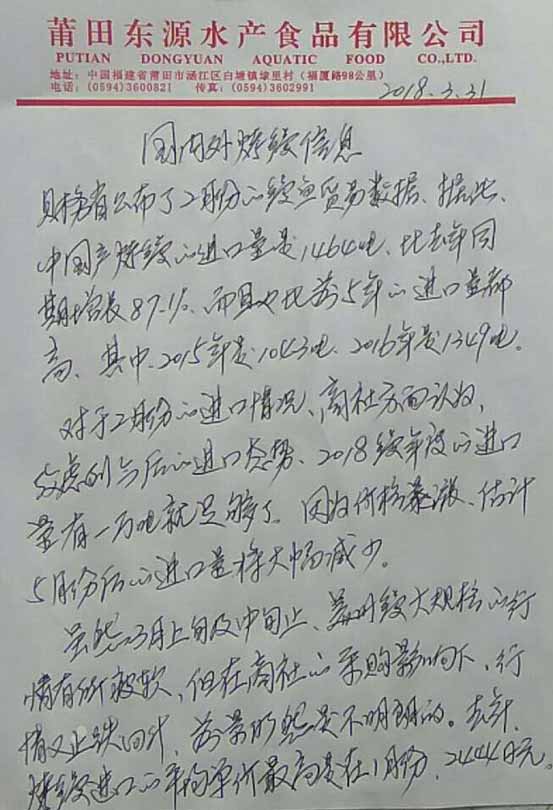 莆田东源水产食品有限公司
PUTIAN DONGYUAN AQUATIC FOOD CO.,LTD.
地址：中国福建省莆田市涵江区白塘镇埭里村（福厦路98公里）
电话：(0594)3600821 传真：(0594)3602991
2018.3.31
国内外烤鳗信息
财务省公布了2月份的鳗鱼贸易数据、据此、
中国产烤鳗的进口量是1464吨、比去年同
期增长87.1%、而且也比前5年的进口量都
高、其中、2015年是1043吨、2016年是1349吨。
对于2月份的进口情况、商社方面认为、
考虑到今后的进口态势、2018鳗年度的进口
量有一万吨就足够了。因为价格暴涨、估计
5月份后的进口量将大幅减少。
虽然3月上旬及中旬止、美州鳗大规格的行
情有所疲软、但在商社的采购影响下、行
情又止跌回升、前景仍然是不明朗的。去年
烤鳗进口的平均单价最高是在1月份、2444日元。